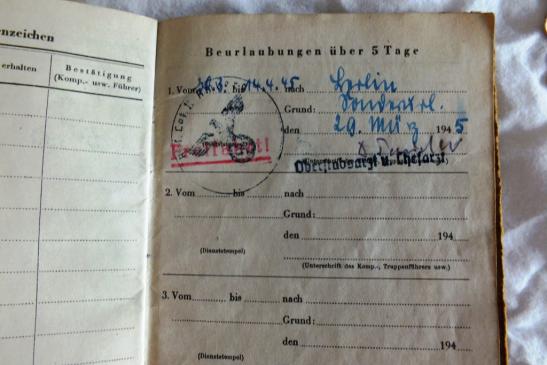 nzeichen
erhalten
Bestätigung
(Komp.- usw. Führer)
Beurlaubungen über 5 Tage
1. Vom bis 14.4.45 nach Berlin
Grund: Sonderurl.
den 29. März 1945
Oberstabsarzt u. Chefarzt
2. Vom bis nach
Grund:
den 194
(Dienststempel)
(Unterschrift des Komp.-, Truppenführers usw.)
3. Vom bis nach
Grund:
den 194
(Dienststempel)